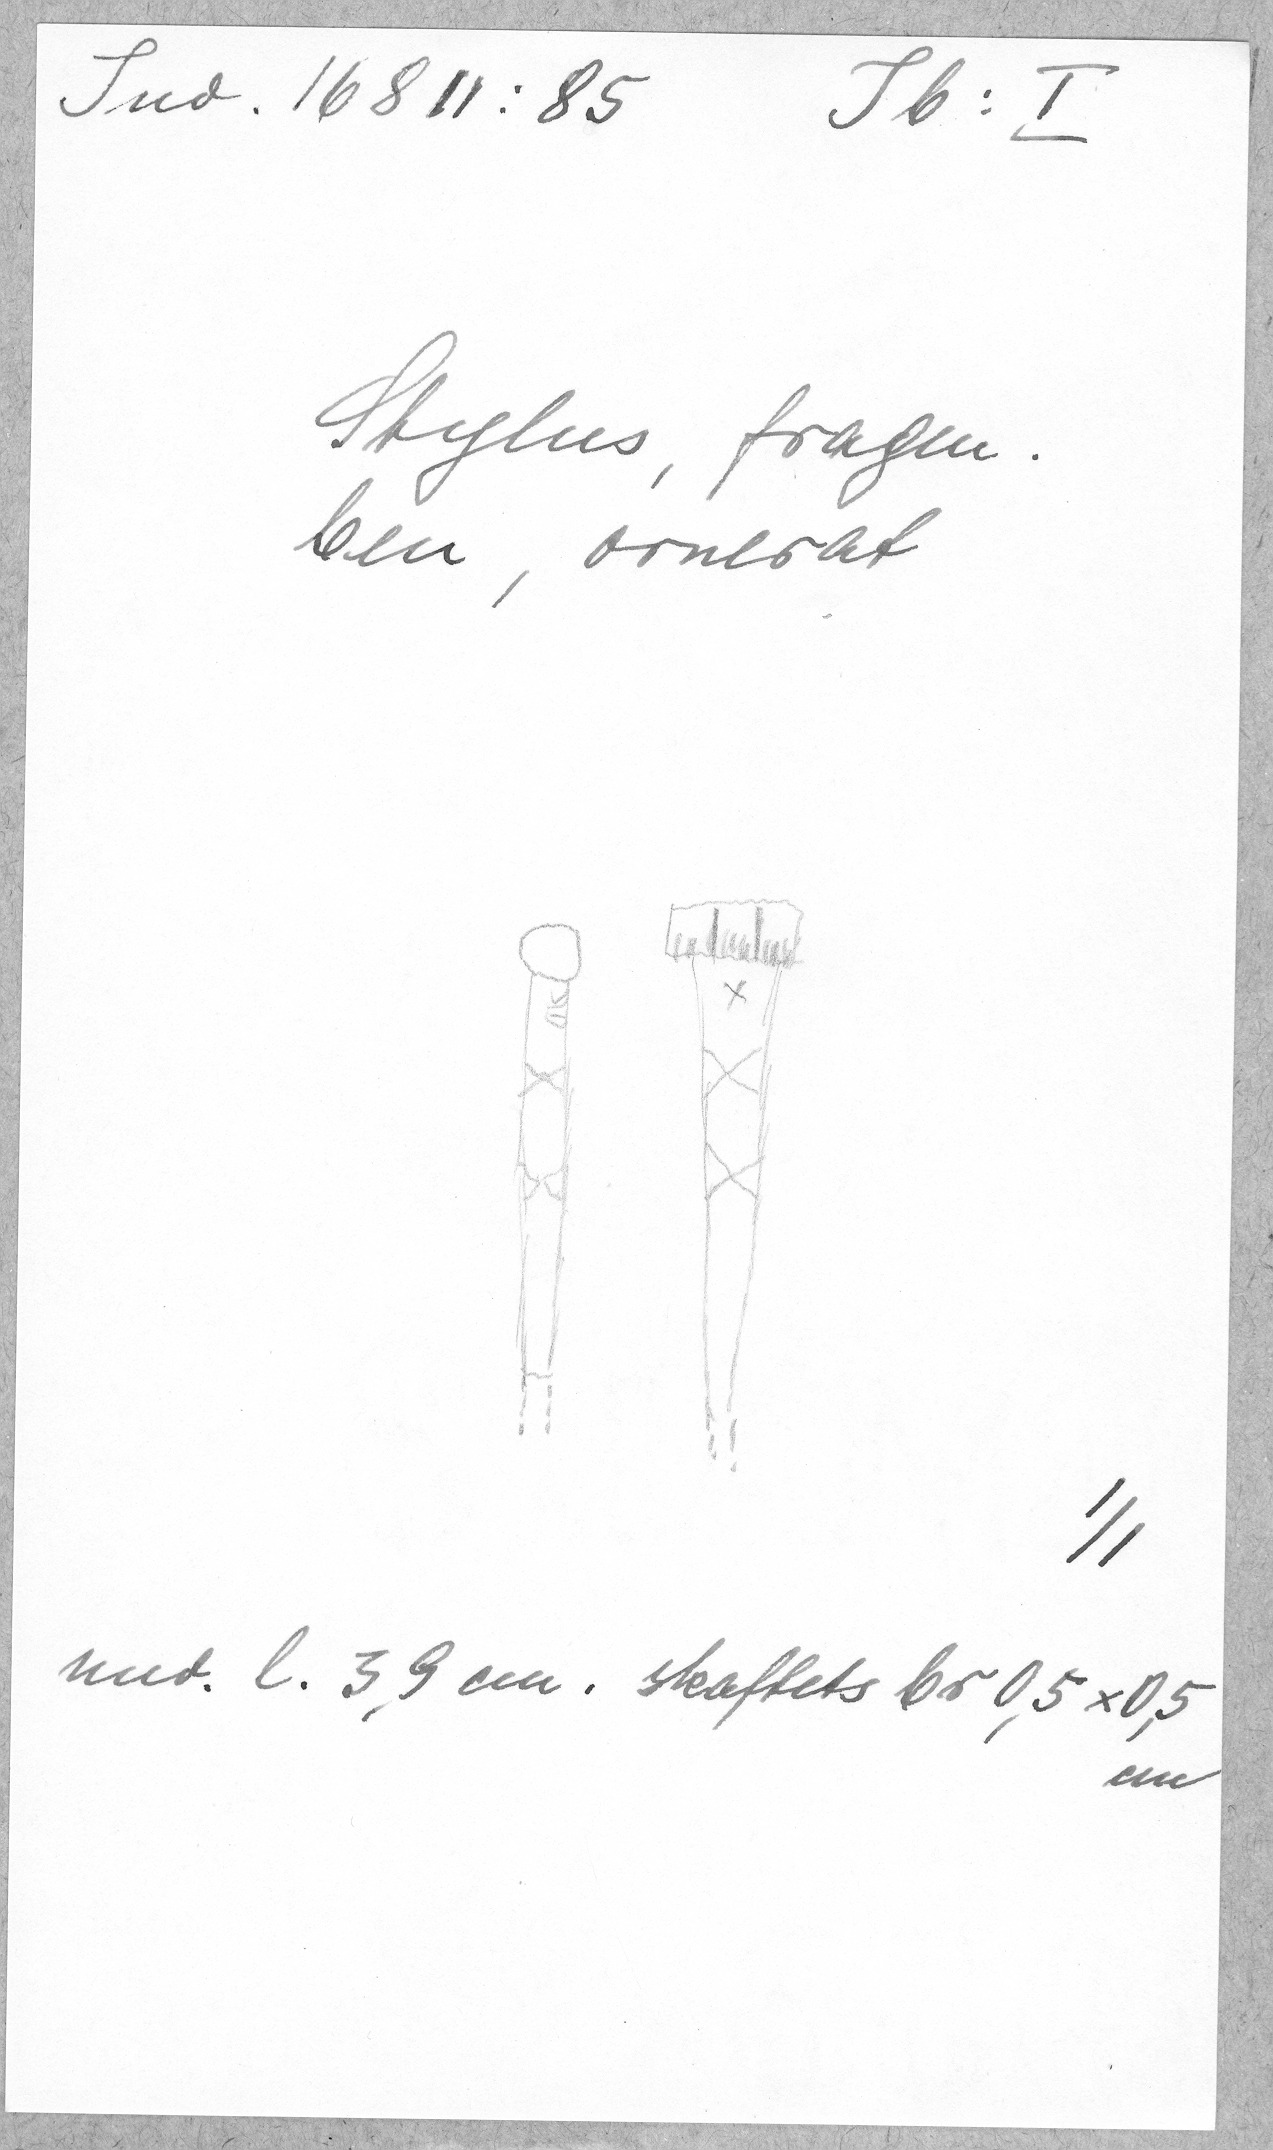 Inv. 16811:85 Jb: I
Stylus, fragm.
ben, ornerat
1/1
nuv. l. 3,9 cm. skaftets br 0,5 x 0,5
cm